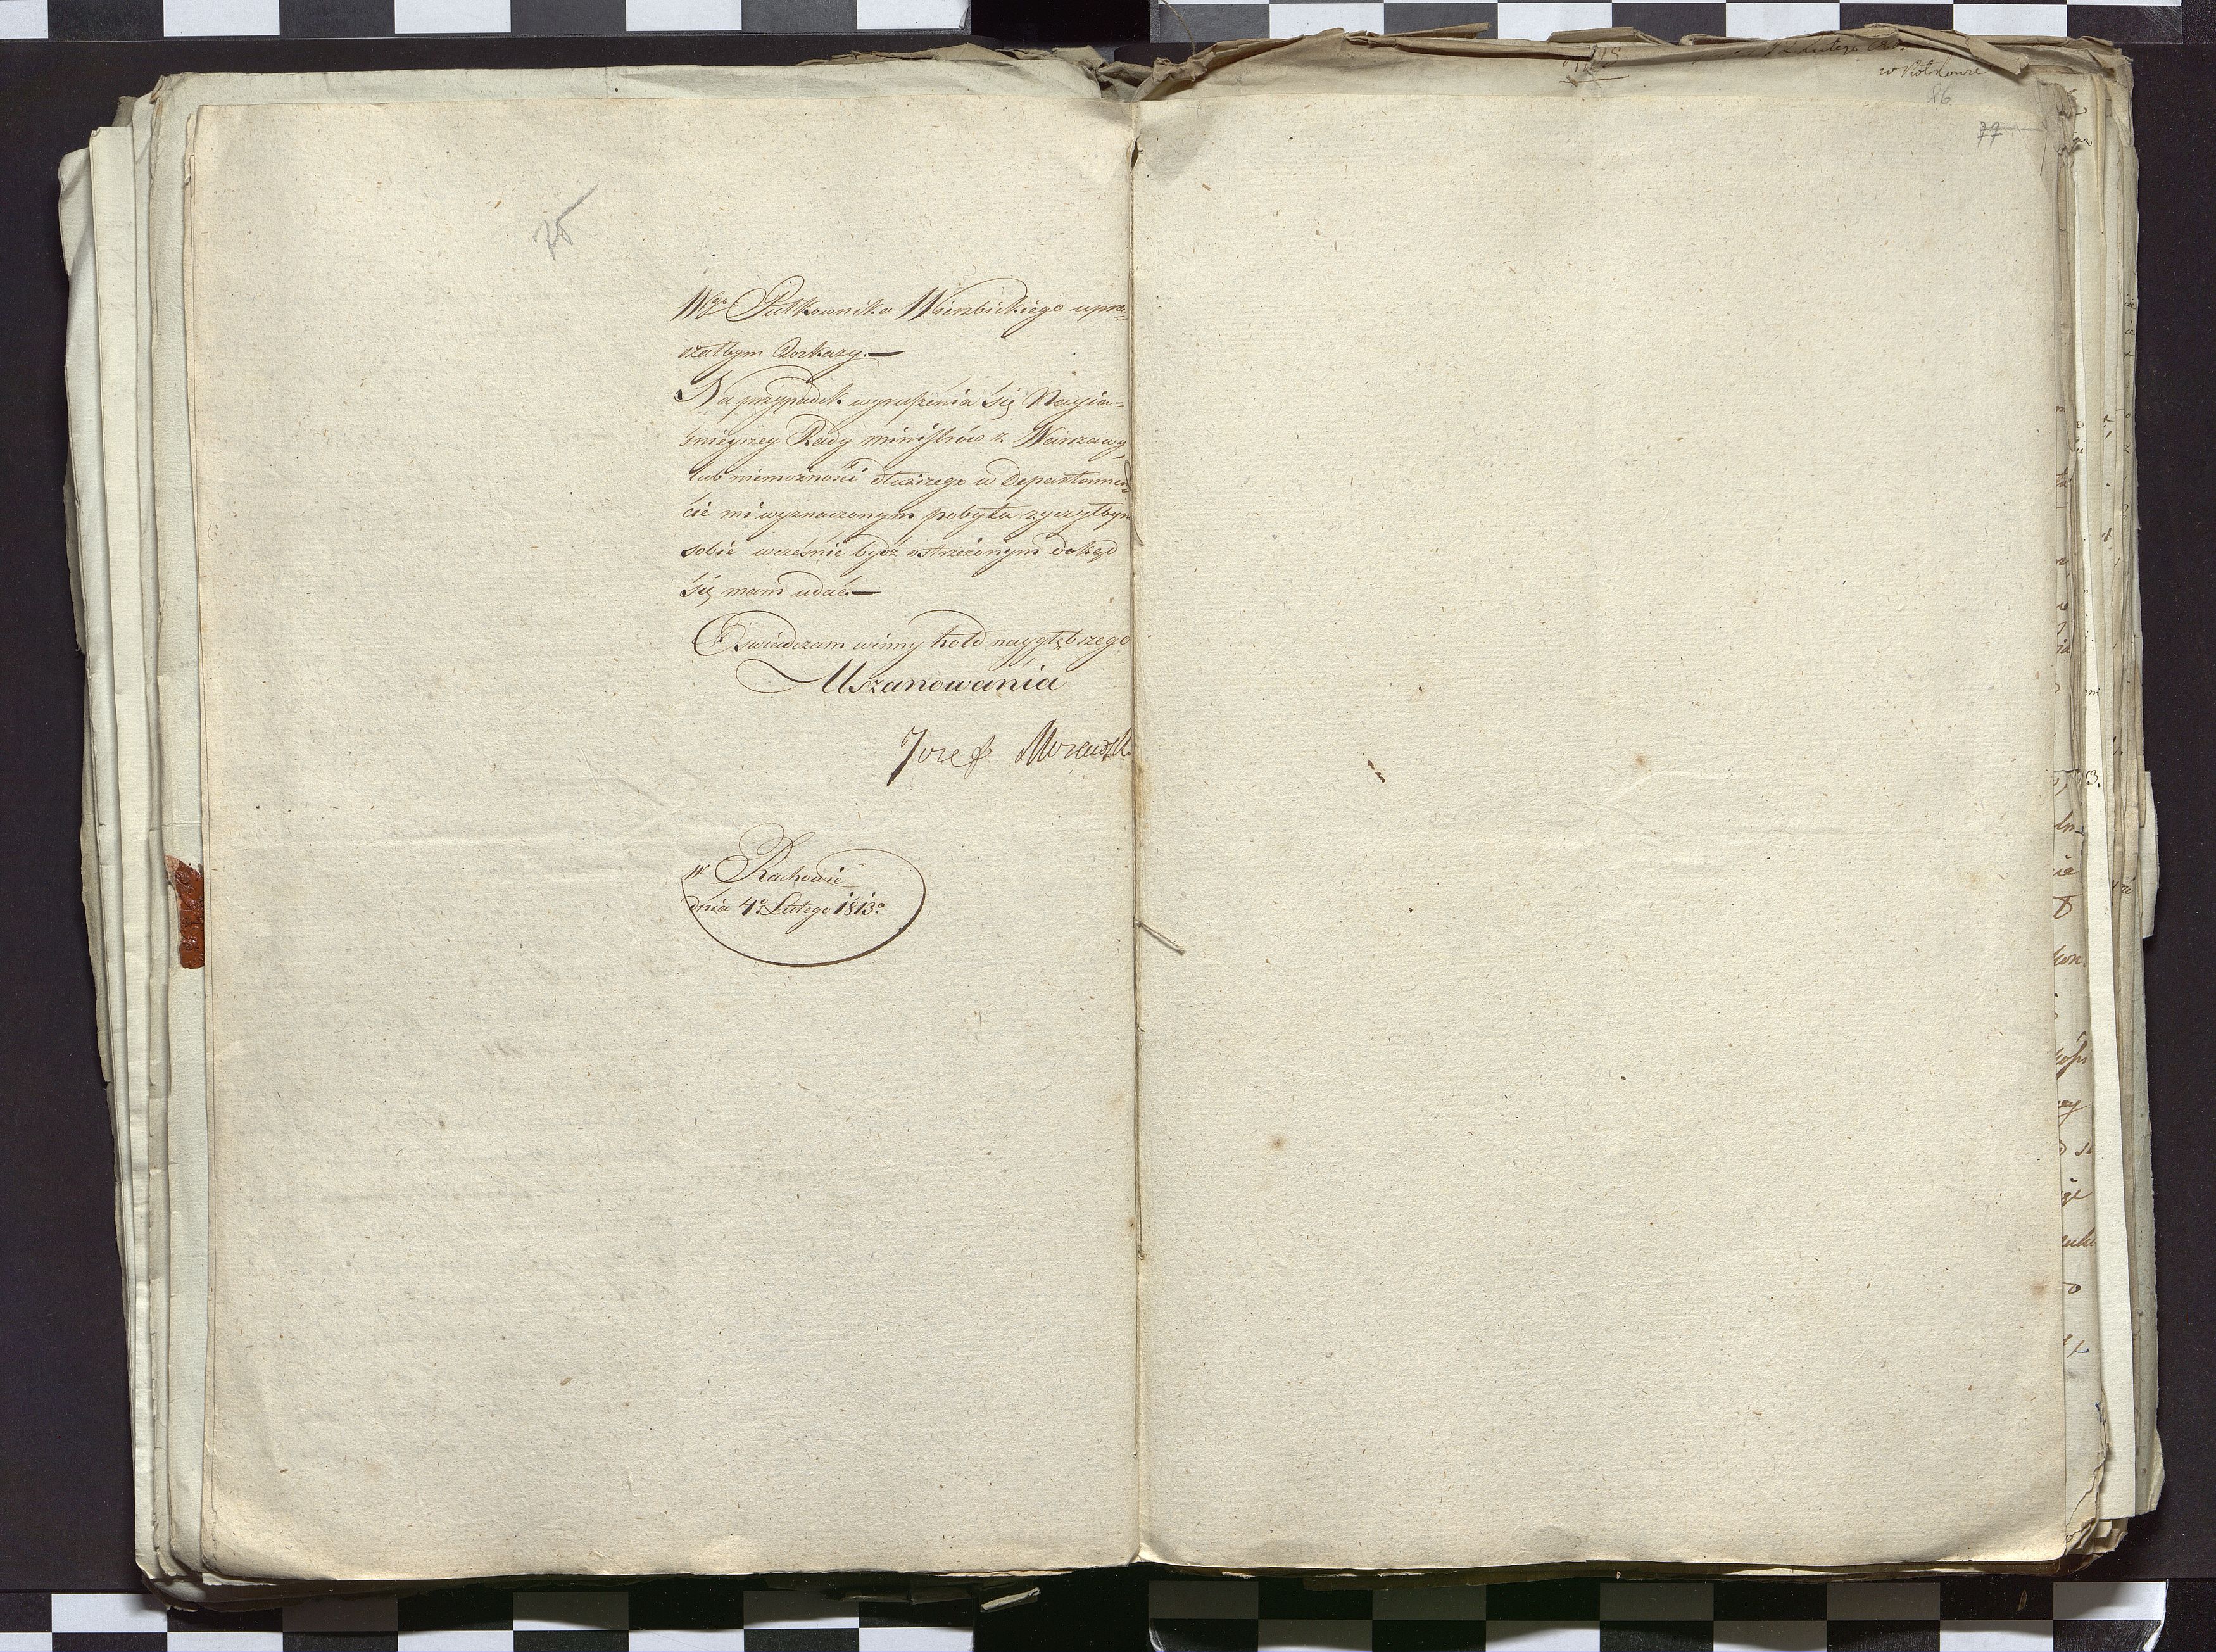 25
Wgo Pułkownika Wierzbickiego upra=
szałbym Rozkazy.—
Na przypadek wyruszenia się Nayia=
śnieyszey Rady ministrów z Warszawy,
lub niemożności dłuższego w Departamen
cie mi wyznaczonym pobytu życzyłbym
sobie wcześnie bydź ostrzeżonym dokąd
się mam udać.—
Oświadczam winny hołd naygłębszego
Uszanowania
Jozef Morawsk
w Rachowie
dnia 4o Lutego 1813o
86
77